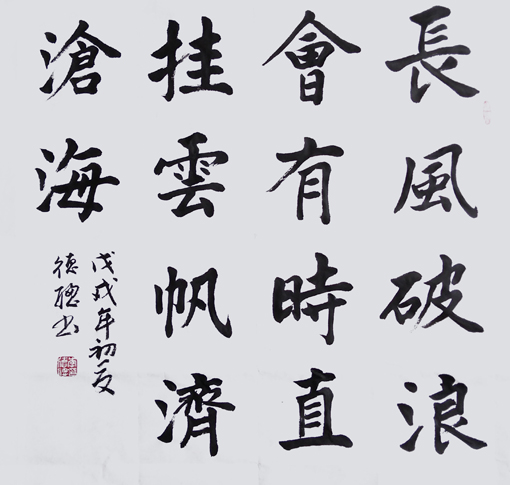 長風破浪
會有時直
挂雲帆濟
滄海
戊戌年初夏
德聰书